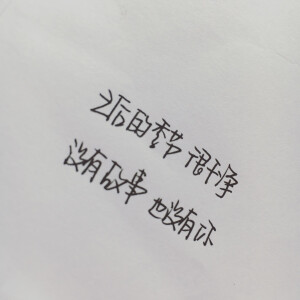 之后的季节 很干净
没有故事 也没有你